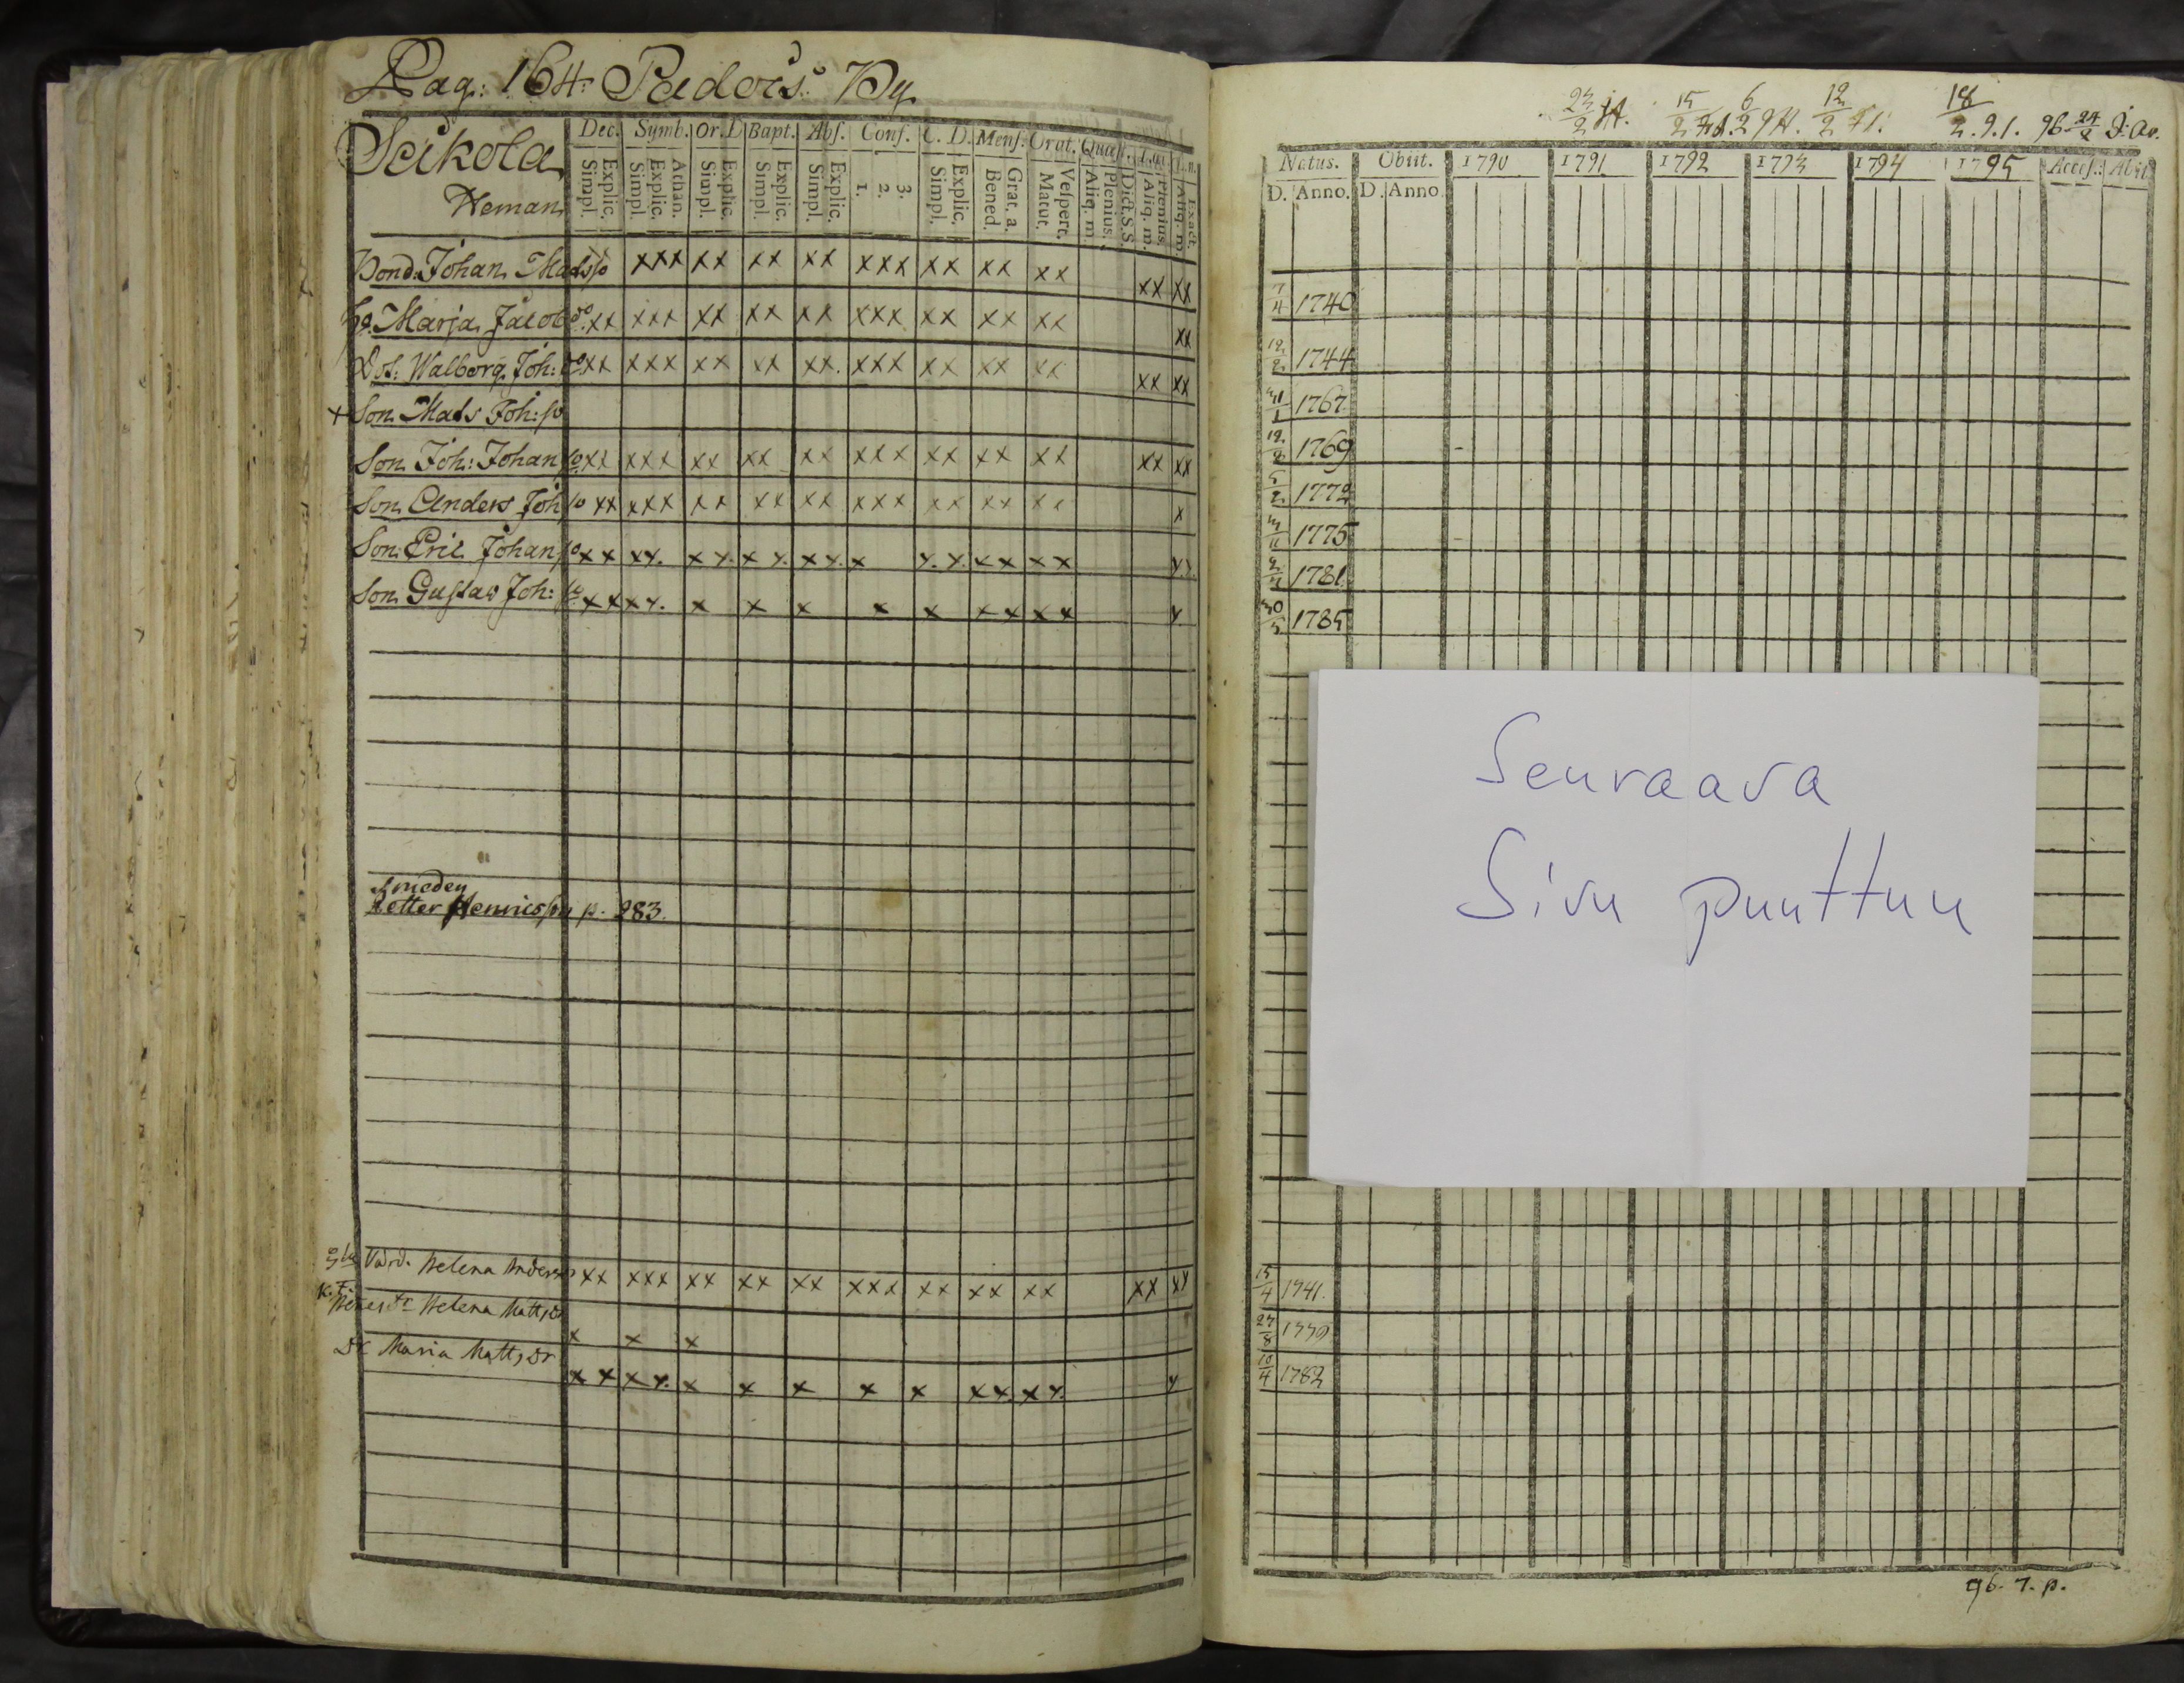 Pag: 164 Padois By
Seikola
Heman
Dec. Symb. Or. D Bapt. Abs. Conf. C. D. Mens. Orat. Quæst.
Explic. Simpl. Athan. Explic. Simpl. Explic. Simpl. Explic. Simpl. Explic. Simpl. 3. 2. 1. Explic. Simpl. Grat. a. Bened. Vespert. Matut. Dict. S.S. Plenius. Aliq. m. Plenius. Aliq. m. Exact. Aliq. m.
Bond. Johan Mads so xxx xx xx xx xxx xx xx xx xx xx
Marja Jacob xx xxx xx xx xx xxx xx xx xx xx
Dot: Walborg Joh: xx xxx xx xx xx. xxx xx xx xx xx xx
+ Son Mats Joh: so
Son Joh: Johan so xx xxx xx xx xx xxx xx xx xx xx xx
Son Anders Joh so xx xxx xx xx xx xxx xx xx xx x
Son Eric Johan so xx xx. xx. xx. xx. x x.x. xx xx xx
Son Gustaw Joh: so xx xx. x x x x x xx xx x
Smeden
Petter Hennicsson p. 283.
Helena Anders xx xxx xx xx xx xxx xx xx xx xx xx
Helena Matts dr x x x
Dr Maria Matts dr xx xx. x x x x x xx. xx. x
23/2 15/2 6/2 12/2 18/2.9.1. 96 24/2
Natus. Obiit. 1790 1791 1792 1793 1794 1795 Access. Abiit
D. Anno. D. Anno
7/4 1740
12/2 1744
31/1 1767
12/8 1769
5/2 1772
3/11 1775
2/4 1781
30/5 1785
Seuraava
Sivu puuttuu
15/4 1741.
27/8 1779
10/4 1782
96. 7. p.